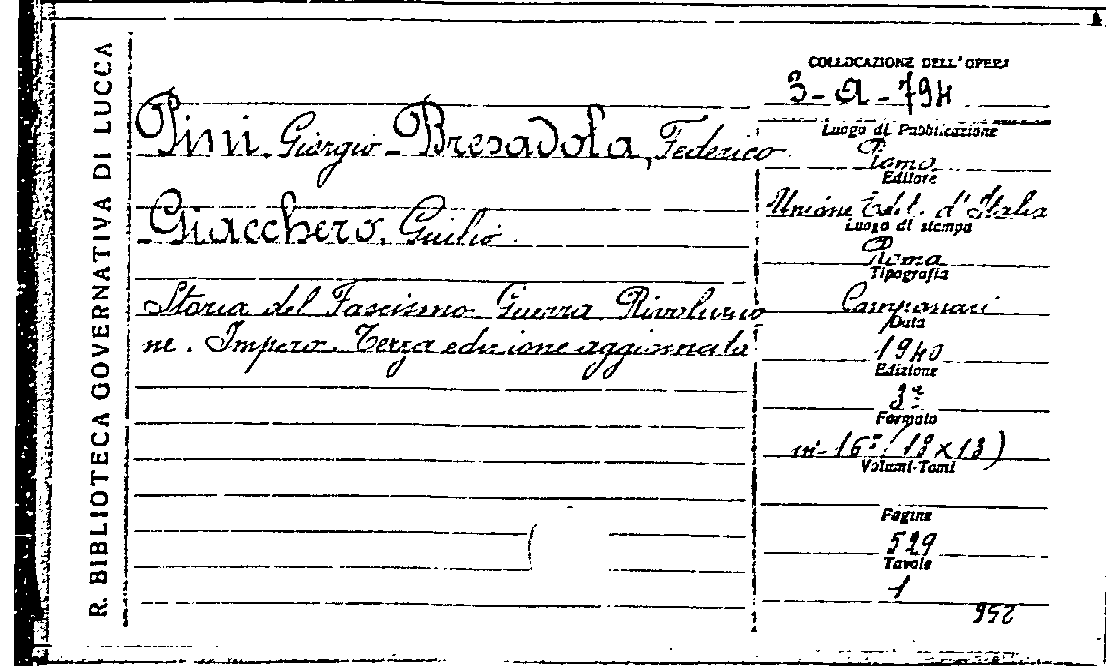 R. BIBLIOTECA GOVERNATIVA DI LUCCA
Pini, Giorgio - Bresadola, Federico
Giacchero, Giulio.
Storia del Fascismo. Guerra Rivoluzio
ne. Impero. Terza edizione aggiornata
COLLOCAZIONE DELL'OPERA
3-A-794
Luogo di Pubblicazione
Roma
Editore
Unione Edit. d'Italia
Luogo di stampa
Roma
Tipografia
Campanari
Data
1940
Edizione
3ª
Formato
in-16º (18x13)
Volumi-Tomi
Pagine
529
Tavole
1
952